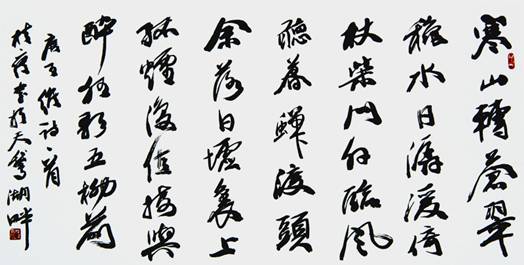 寒山轉蒼翠
穐水日潺湲倚
杖柴門外臨風
聽暮蟬渡頭
余落日墟裏上
孤煙復值接輿
醉狂歌五柳前
唐王維詩一首
書於天鵞湖畔